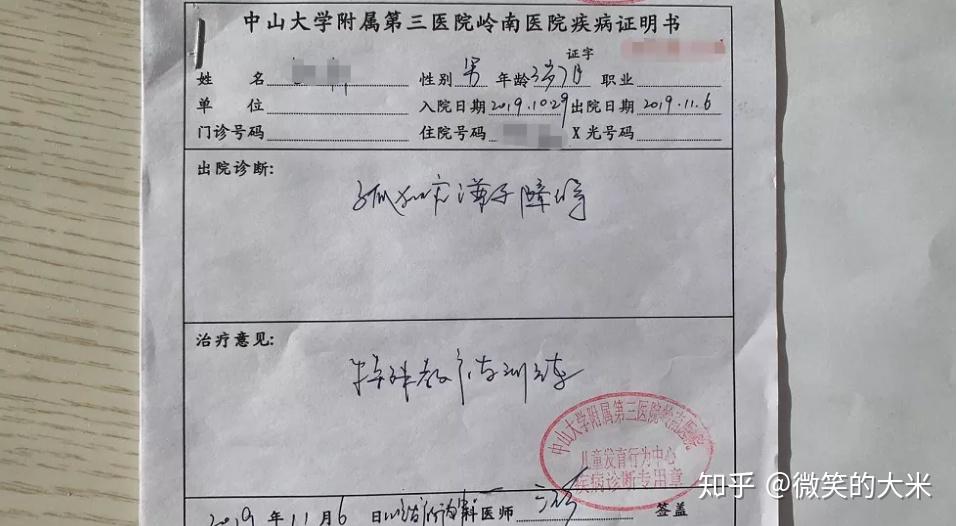 中山大学附属第三医院岭南医院疾病证明书
证字
姓 名 性别 男 年龄 3岁7月 职业
单 位 入院日期 2019.10.29 出院日期 2019.11.6
门诊号码 住院号码 X光号码
出院诊断:
孤独症谱系障碍
治疗意见:
特殊教育与训练
中山大学附属第三医院岭南医院
儿童发育行为中心
疾病诊断专用章
2019年11月6日 科医师 签盖
知乎 @微笑的大米